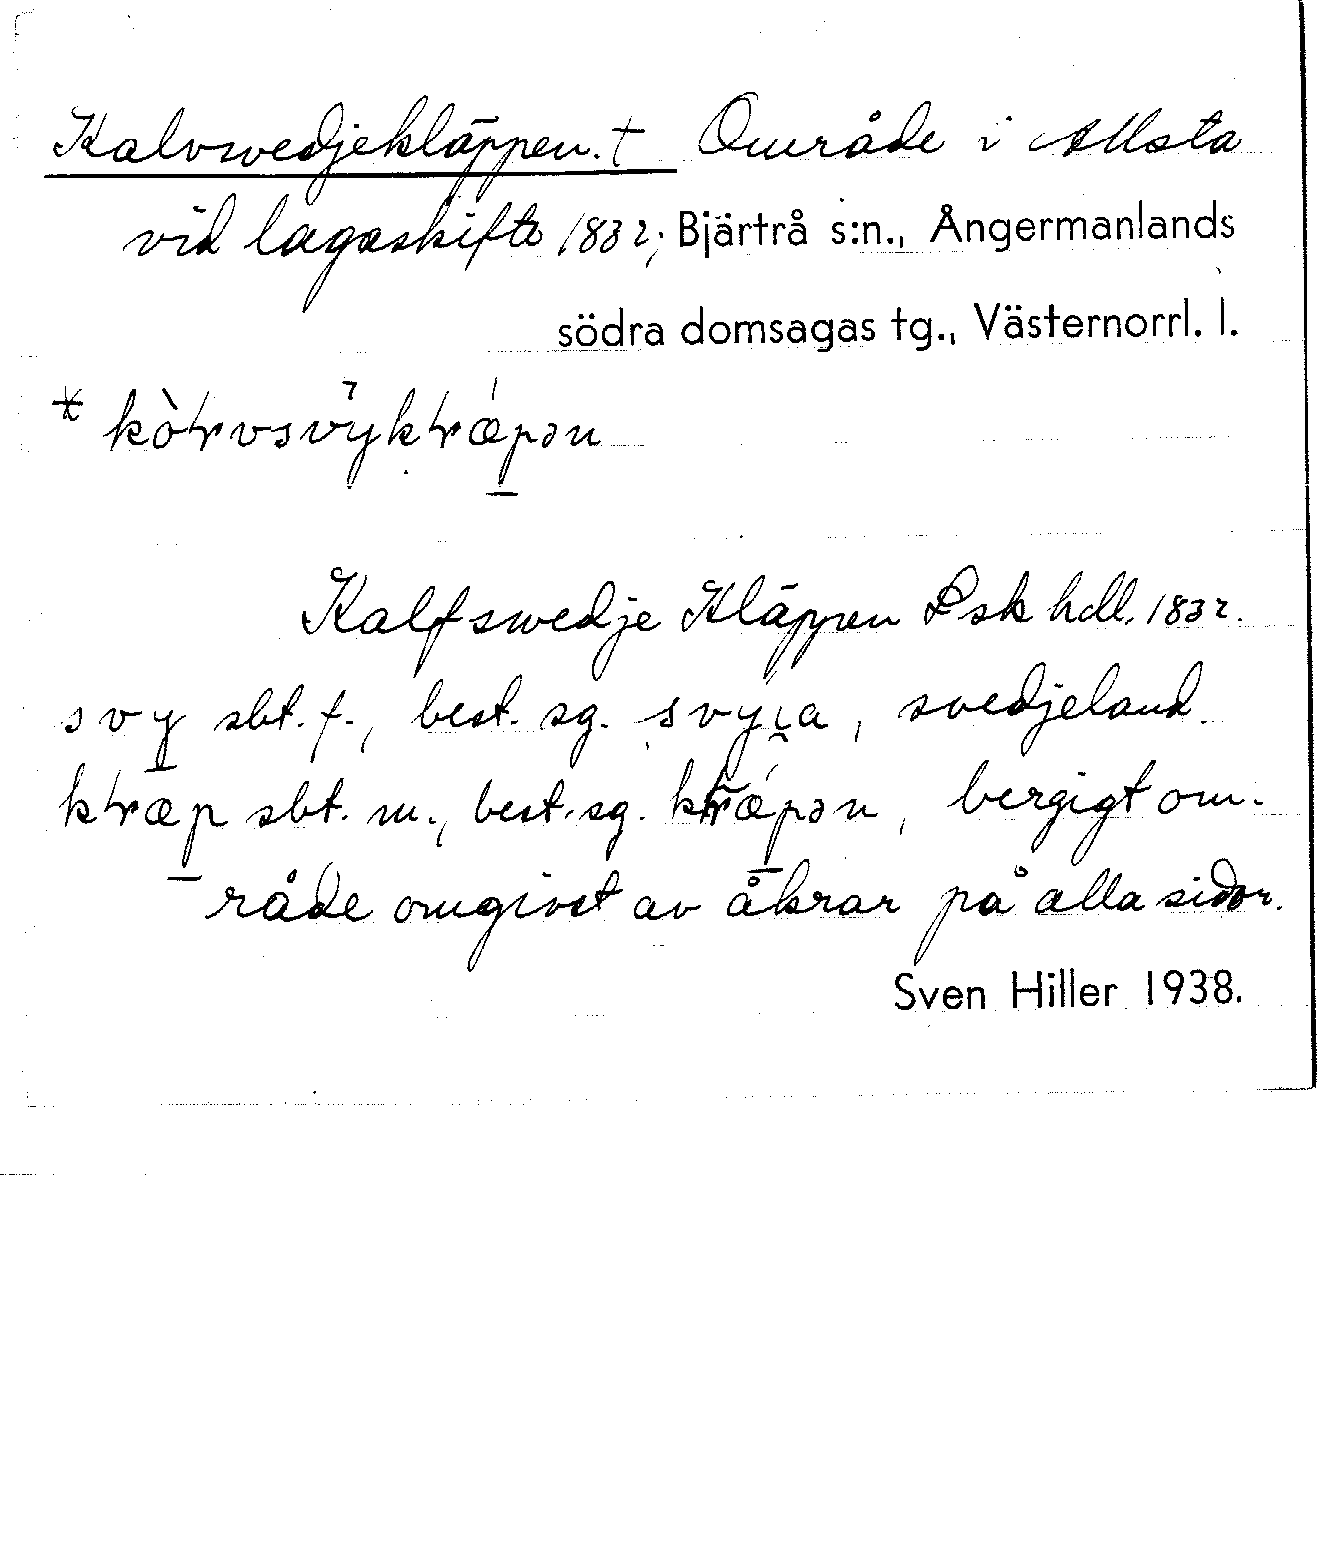 Kalvsvedjekläppen. † Område i Allsta
vid laga skifte 1832; Bjärtrå s:n., Ångermanlands
södra domsagas tg., Västernorrl. l.
Kalfswedje Kläppen Lsk hdl. 1832.
svy sbt. f., best. sg. , svedjeland.
sbt. m., best. sg. , bergigt om-
råde omgivet av åkrar på alla sidor.
Sven Hiller 1938.